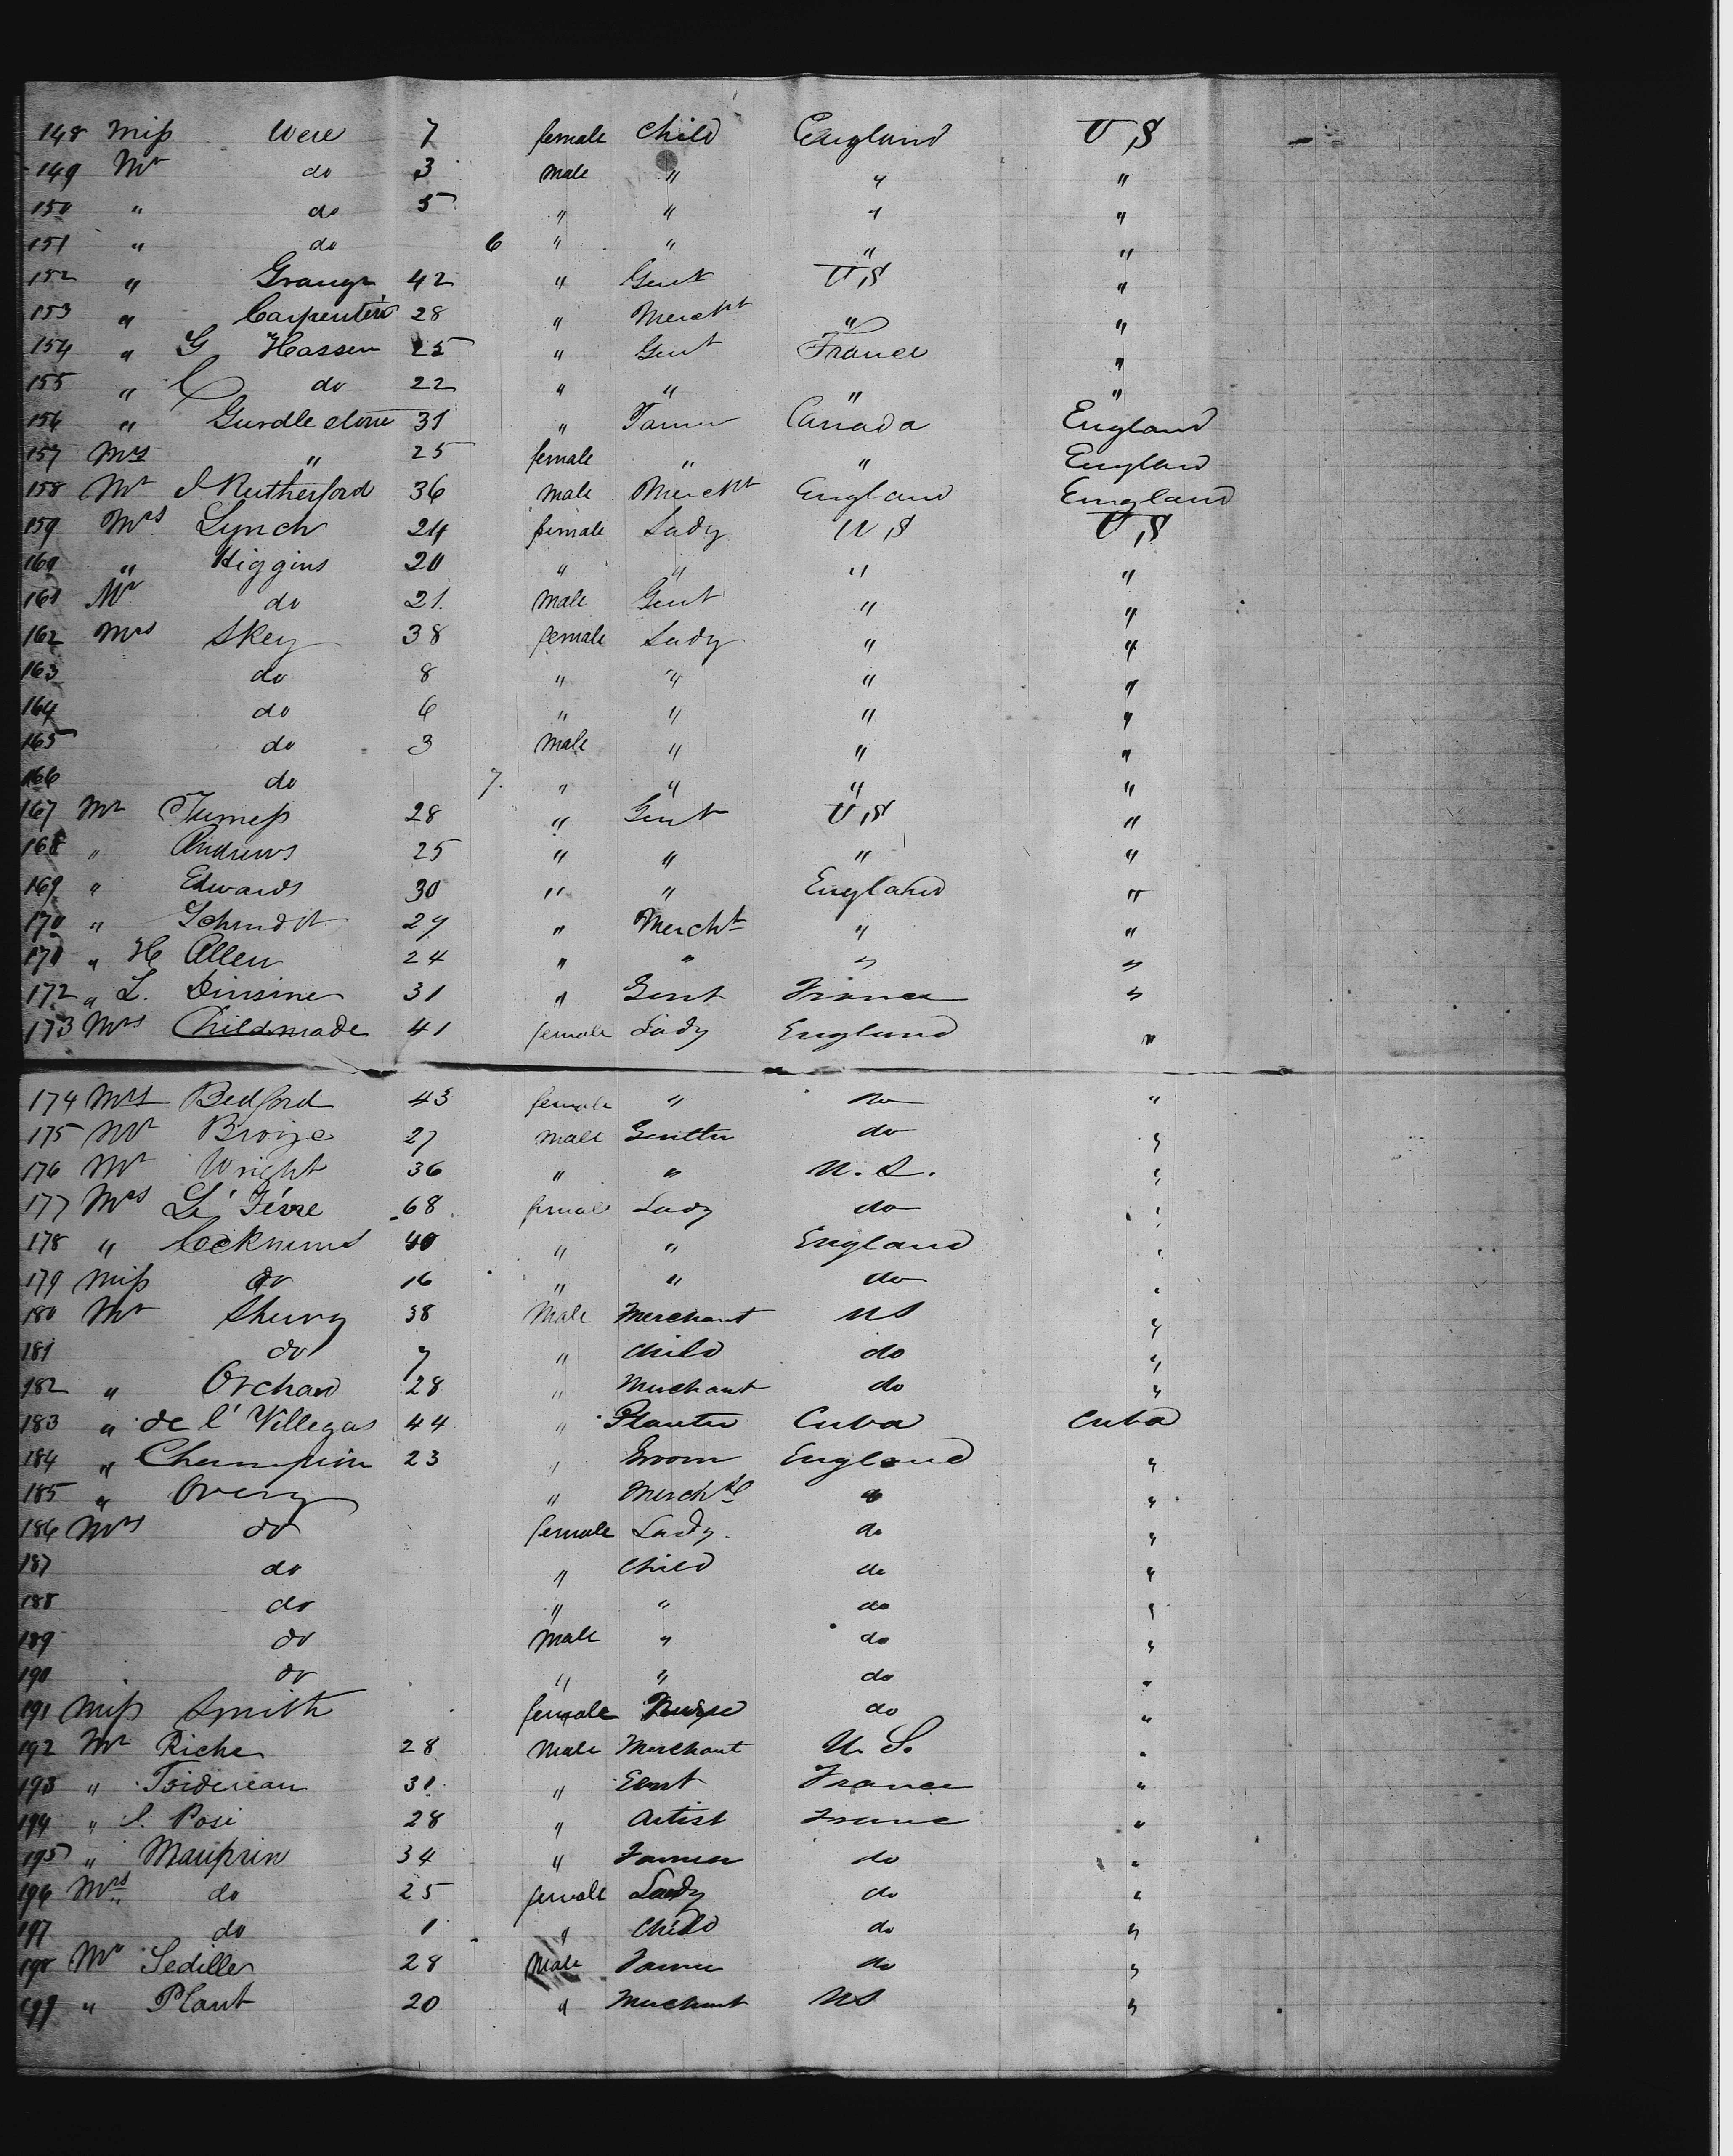 148 Miss Were 7 female Child England U S
149 Mr do 3 male " " "
150 " do 5 " " " "
151 " do 6 " " " "
152 " Granger 42 " Gent U S "
153 " Carpenter 28 " Mercht " "
154 " G Hassen 25 " Gent France "
155 " C do 22 " " " "
156 " Gurdlestone 31 " Farmer Canada England
157 Mrs " 25 female " " England
158 Mr J. Rutherford 36 male Mercht England England
159 Mrs Lynch 24 female Lady U S U S
160 " Higgins 20 " " " "
161 Mr do 21 male Gent " "
162 Mrs Skey 38 female Lady " "
163 do 8 " " " "
164 do 6 " " " "
165 do 3 male " " "
166 do 7 " " " "
167 Mr 28 " Gent U S "
168 " Andrews 25 " " " "
169 " Edwards 30 " " England "
170 " Schmidt 29 " Mercht " "
171 " H Allen 24 " " " "
172 " L. 31 " Gent France "
173 Mrs Childmade 41 female Lady England "
174 Mrs Bedford 43 female " do "
175 Mr 27 male do "
176 Mr Wright 36 " " U. S. "
177 Mrs Lé Févre 68 female Lady do "
178 " 40 " " England "
179 Miss do 16 " " do "
180 Mr 38 Male Merchant U S "
181 do 7 " child do "
182 " Orchard 28 " Merchant do "
183 " de l' Villegas 44 " Planter Cuba Cuba
184 " Champion 23 " Groom England "
185 " Overy " Mercht do "
186 Mrs do female Lady. do "
187 do " Child do "
188 do " " do "
189 do Male " do "
190 do " " do "
191 Miss Smith female Nurse do "
192 Mr Riche 28 Male Merchant U. S. "
193 " 31 " Gent France "
194 " 28 " Artist France "
195 " Mauprin 34 " Farmer do "
196 Mrs do 25 female Lady do "
197 do 1 " Child do "
198 Mr Sediller 28 Male Farmer do "
199 " Plant 20 " Merchant U S "